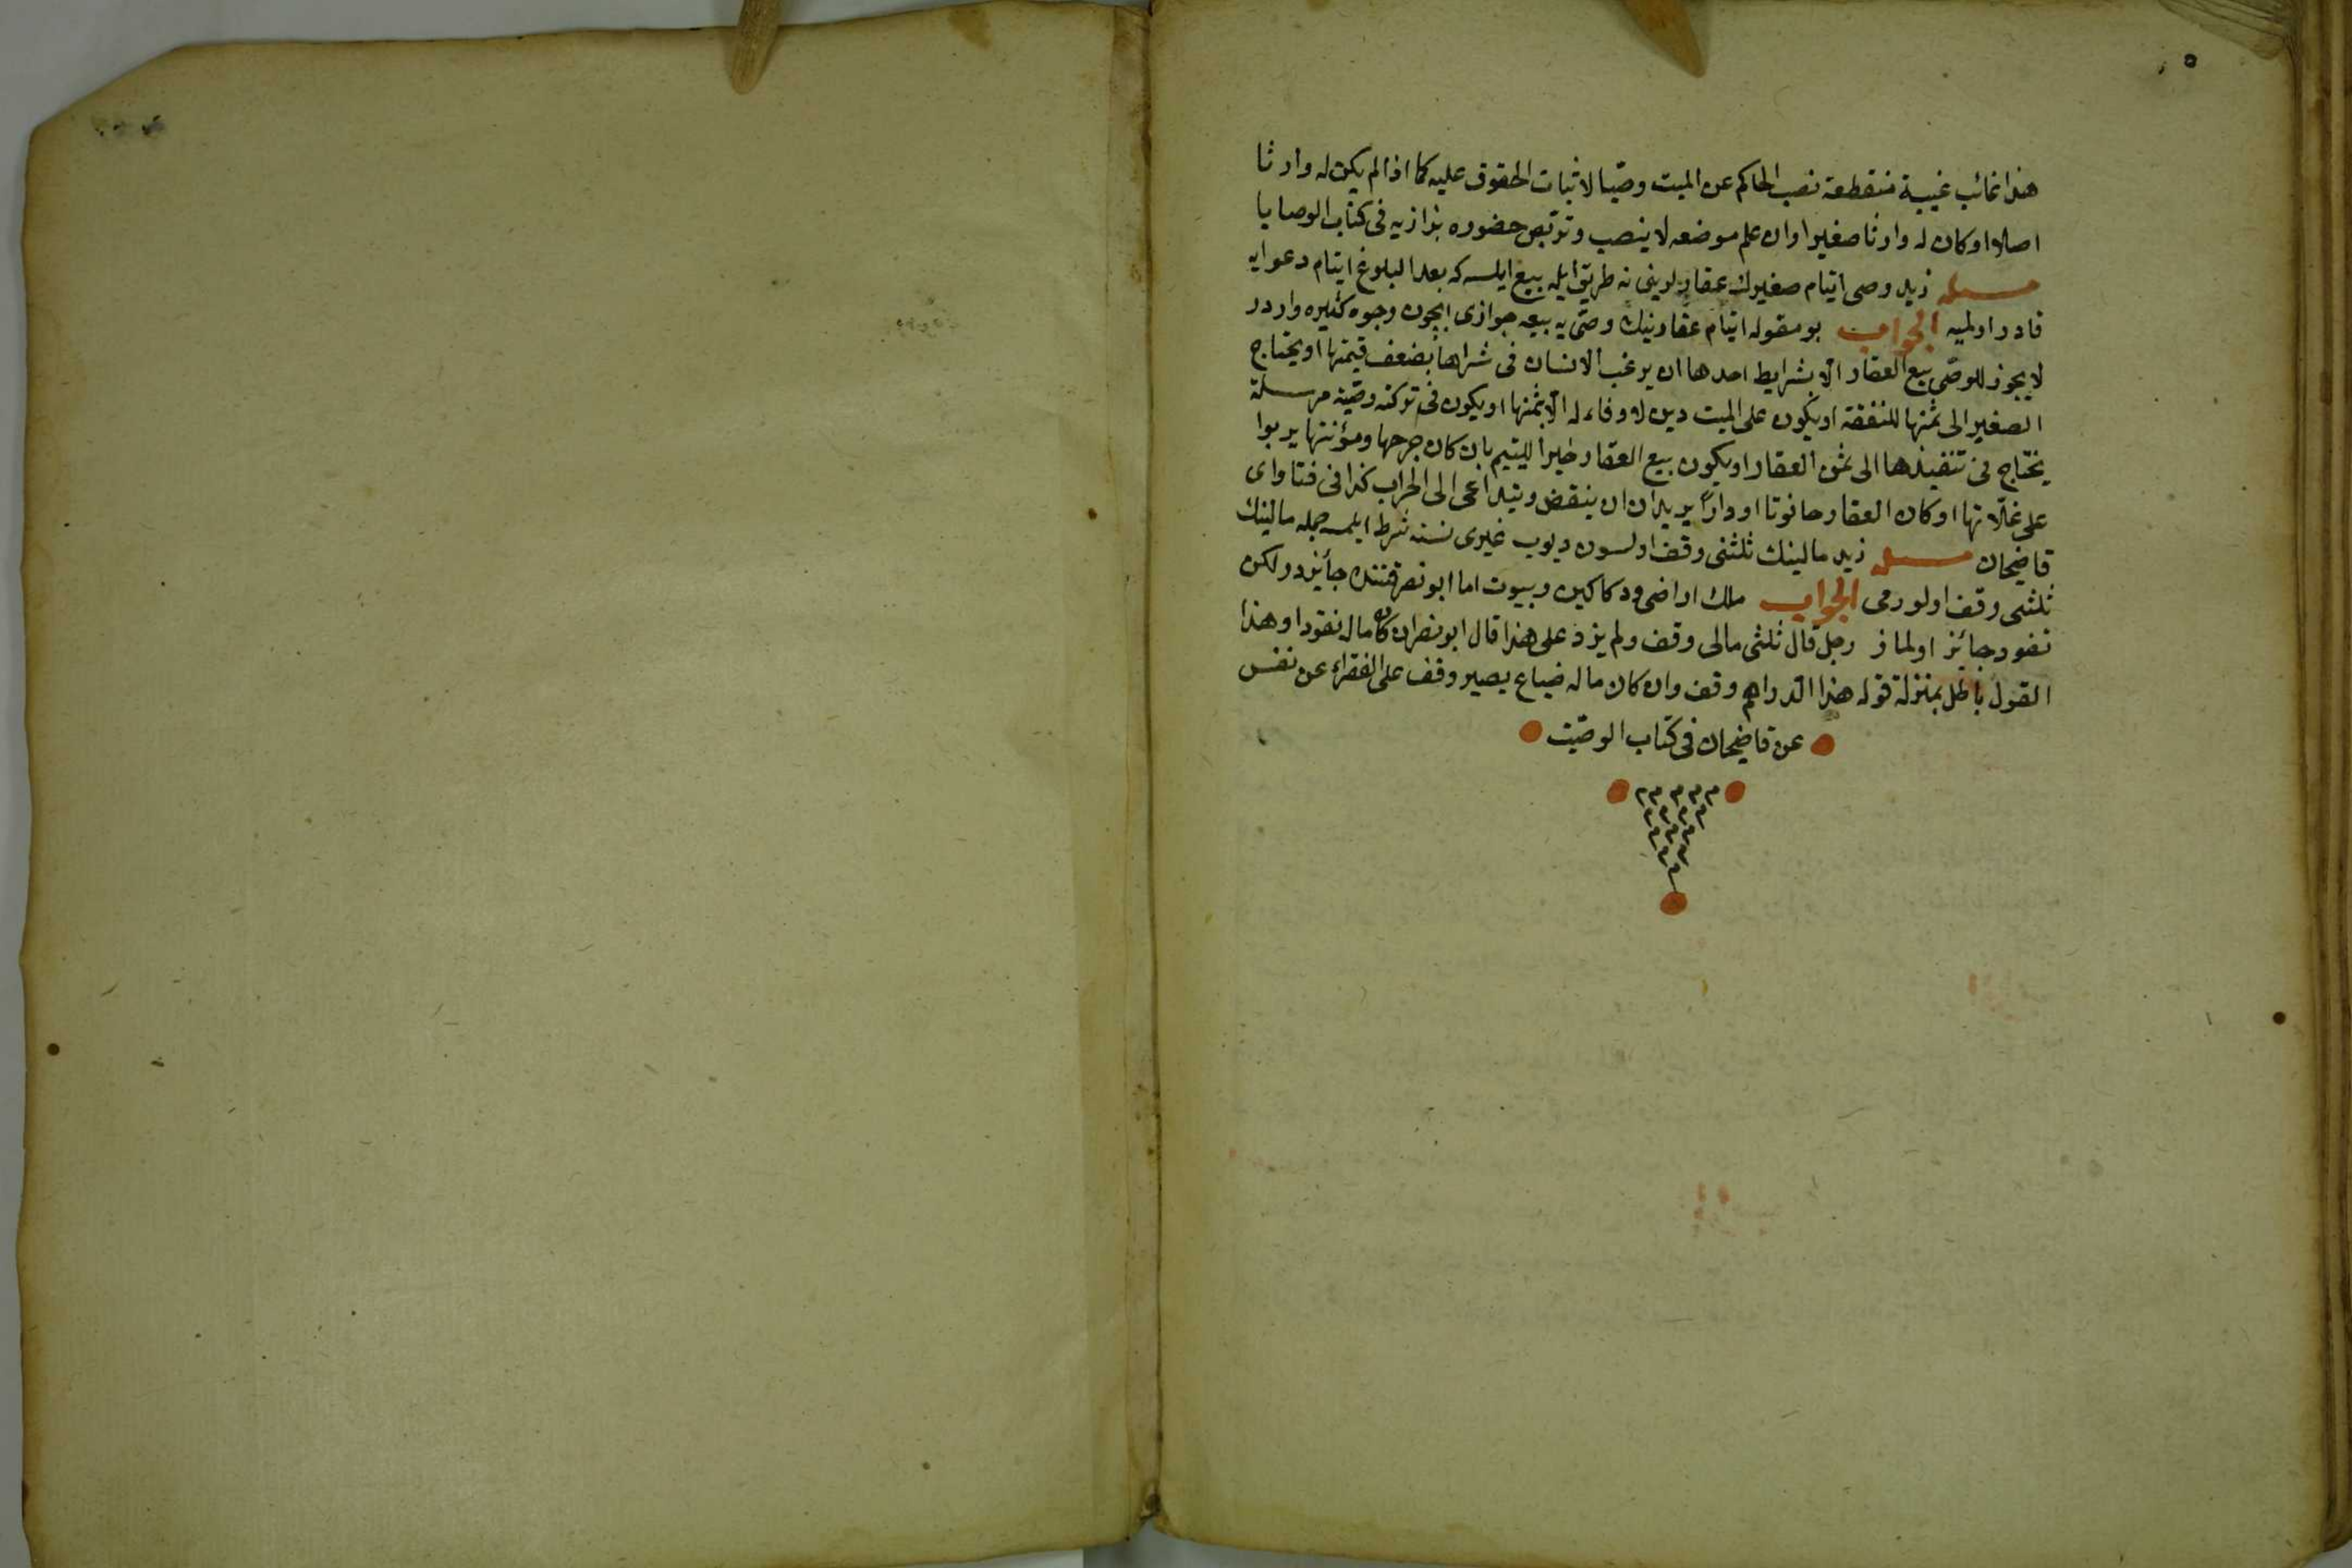 هذا غائب غيبة منقطعة نصب الحاكم عن الميت وصيا لاثبات الحقوق عليه كما اذا لم يكن له وارثا
اصلا او كان له وارثا صغيرا وان علم موضعه لا ينصب وتربص حضوره بزازيه فى كتاب الوصايا
مسئله زيد وصى ايتام صغيرك عقارلرينى نه طريق ايله بيع ايلسه كه بعد البلوغ ايتام دعوايه
قادر اولميه الجواب بو مقوله ايتام عقارينك وصى يه بيعه جوازى ايچون وجوه كثيره واردر
لا يجوز للوصى بيع العقار الا بشرايط احدها ان يرغب الانسان فى شراها بضعف قيمتها او يحتاج
الصغير الى ثمنها للنفقة او يكون على الميت دين لا وفاء له الا بثمنها او يكون فى تركته وصية مرسلة
يحتاج فى تنفيذها الى ثمن العقار او يكون بيع العقار خيرا لليتيم بان كان خرجها ومؤنتها يربوا
على غلاتها او كان العقار حانوتا او دارا يريد ان ان ينقض ويتداعى الى الخراب كذا فى فتاواى
قاضيخان مسئله زيد مالينك ثلثنى وقف اولسون ديوب غيرى نسنه شرط ايلمسه جمله مالينك
ثلثى وقف اولورمى الجواب ملك اراضى ودكاكين وبيوت اما ابو نصر قتنده جائزدر لكن
نقود جائز اولماز رجل قال ثلثى مالى وقف ولم يزد على هذا قال ابو نصر ان كان ماله نقودا وهذا
القول باطل بمنزلة قوله هذا الدراهم وقف وان كان ماله ضياع يصير وقف على الفقراء عن نفس
عن قاضيخان فى كتاب الوصيت